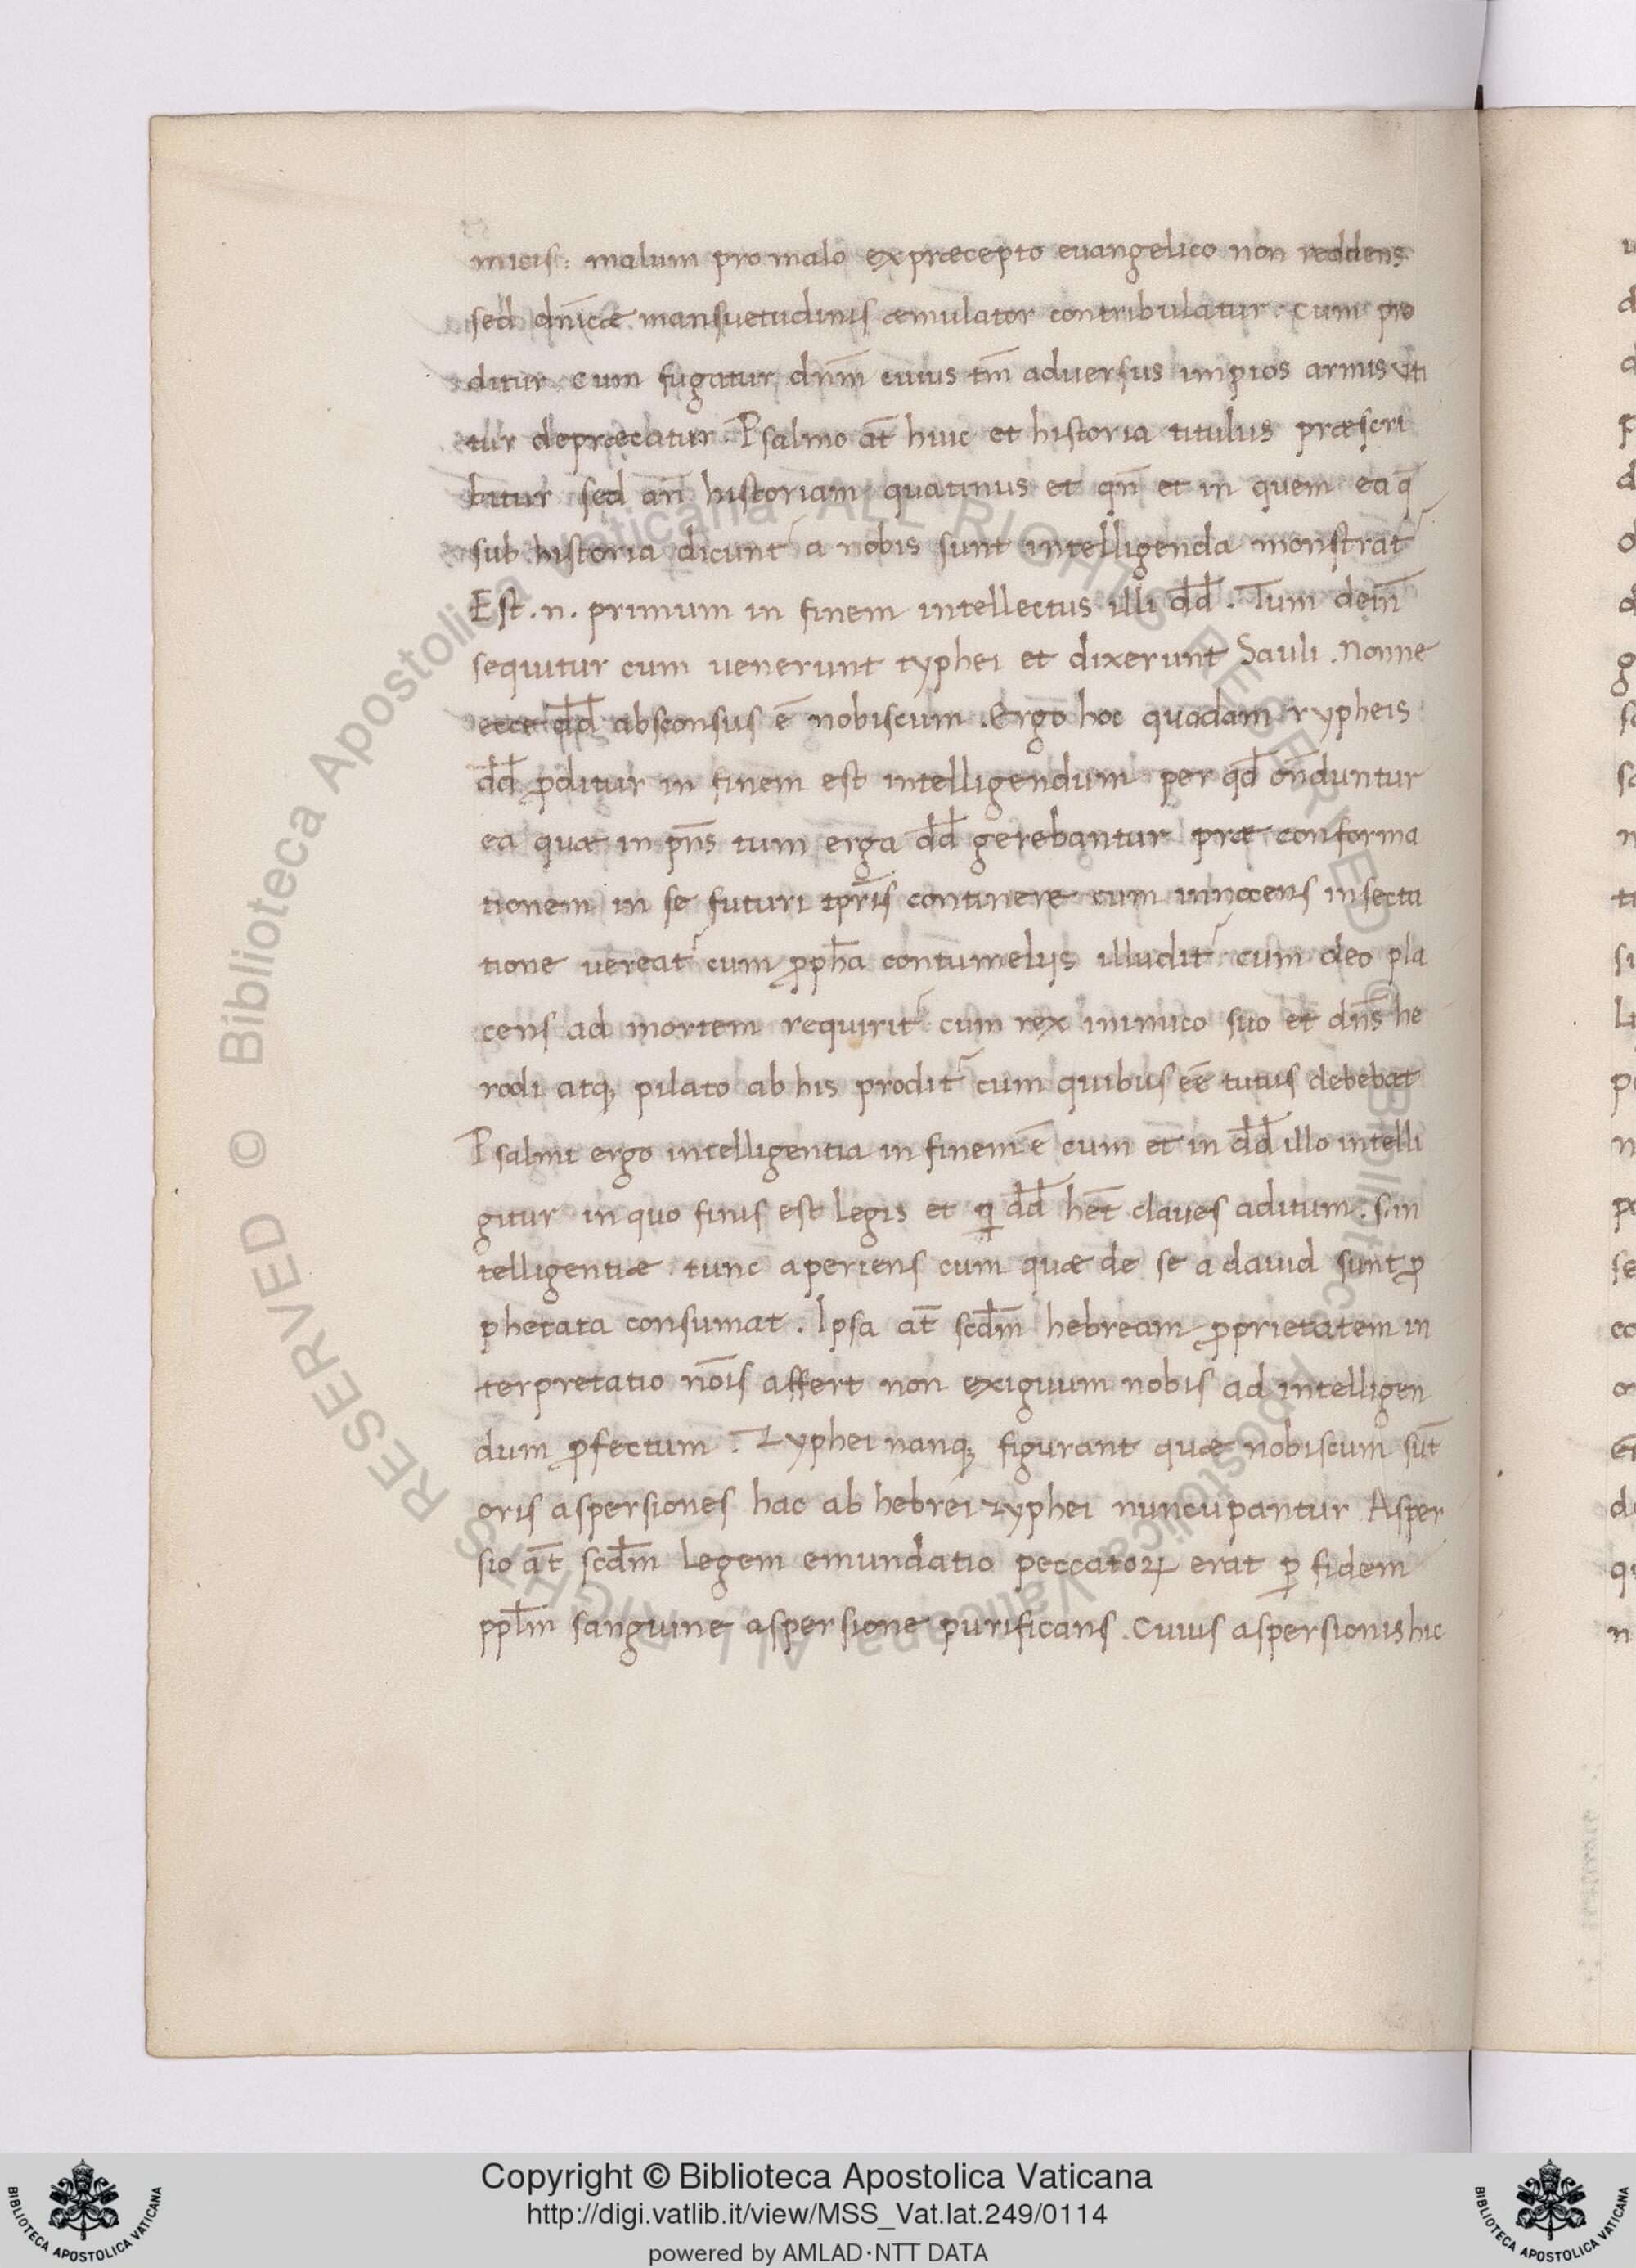 micis: malum pro malo ex præcepto euangelico non reddens
sed dnīcæ mansuetudinis æmulator contribulatur. cum pro
ditur cum fugatur dnm̄ cuius tm̄ aduersus impios armis uti
tur depræcatur. Psalmo at̄ huic et historia titulus præscri
bitur sed an̄ historiam quatinus et qn̄ et in quem ea q̄
sub historia dicunt᷑ a nobis sunt intelligenda monstrat᷑
Est .n. primum in finem intellectus illi dd̄. Tum dein̄
sequitur cum uenerunt typhei et dixerunt Sauli. Nonne
ecce dd̄ absconsus ē nobiscum. Ergo hoc quadam rypheis
dd̄ ꝓditur in finem est intelligendum per qd̄ on̄duntur
ea quæ in pn̄s tum erga dd̄ gerebantur præ conforma
tionem in se futuri tpr̄is continere cum innocens insecta
tione uereat᷑ cum ꝓph̄a contumeliis illudit᷑ cum deo pla
cens ad mortem requirit᷑ cum rex inimico suo et dn̄s he
rodi atq; pilato ab his prodit᷑ cum quibus eē tutus debebat
Psalmi ergo intelligentia in finem ē cum et in dd̄ illo intelli
gitur in quo finis est legis et ꝗ dd̄ hēt claues aditum .s. in
telligentiæ tunc aperiens cum quæ de se a dauid sunt ꝓ
phetata consumat. Ipsa at̄ scdm̄ hebream ꝓprietatem in
terpretatio nōis affert non exiguum nobis ad intelligen
dum ꝓfectum. Zyphei nanq; figurant quæ nobiscum sūt
oris aspersiones hac ab hebrei zyphei nuncupantur Asper
sio at̄ scdm̄ legem emundatio peccatoꝝ erat ꝑ fidem
ppl̄m sanguine aspersione purificans. Cuius aspersionis hic
Copyright © Biblioteca Apostolica Vaticana
http://digi.vatlib.it/view/MSS_Vat.lat.249/0114
powered by AMLAD·NTT DATA
BIBLIOTECA APOSTOLICA VATICANA
BIBLIOTECA APOSTOLICA VATICANA
© Biblioteca Apostolica Vaticana ALL RIGHTS RESERVED
© Biblioteca Apostolica Vaticana ALL RIGHTS RESERVED